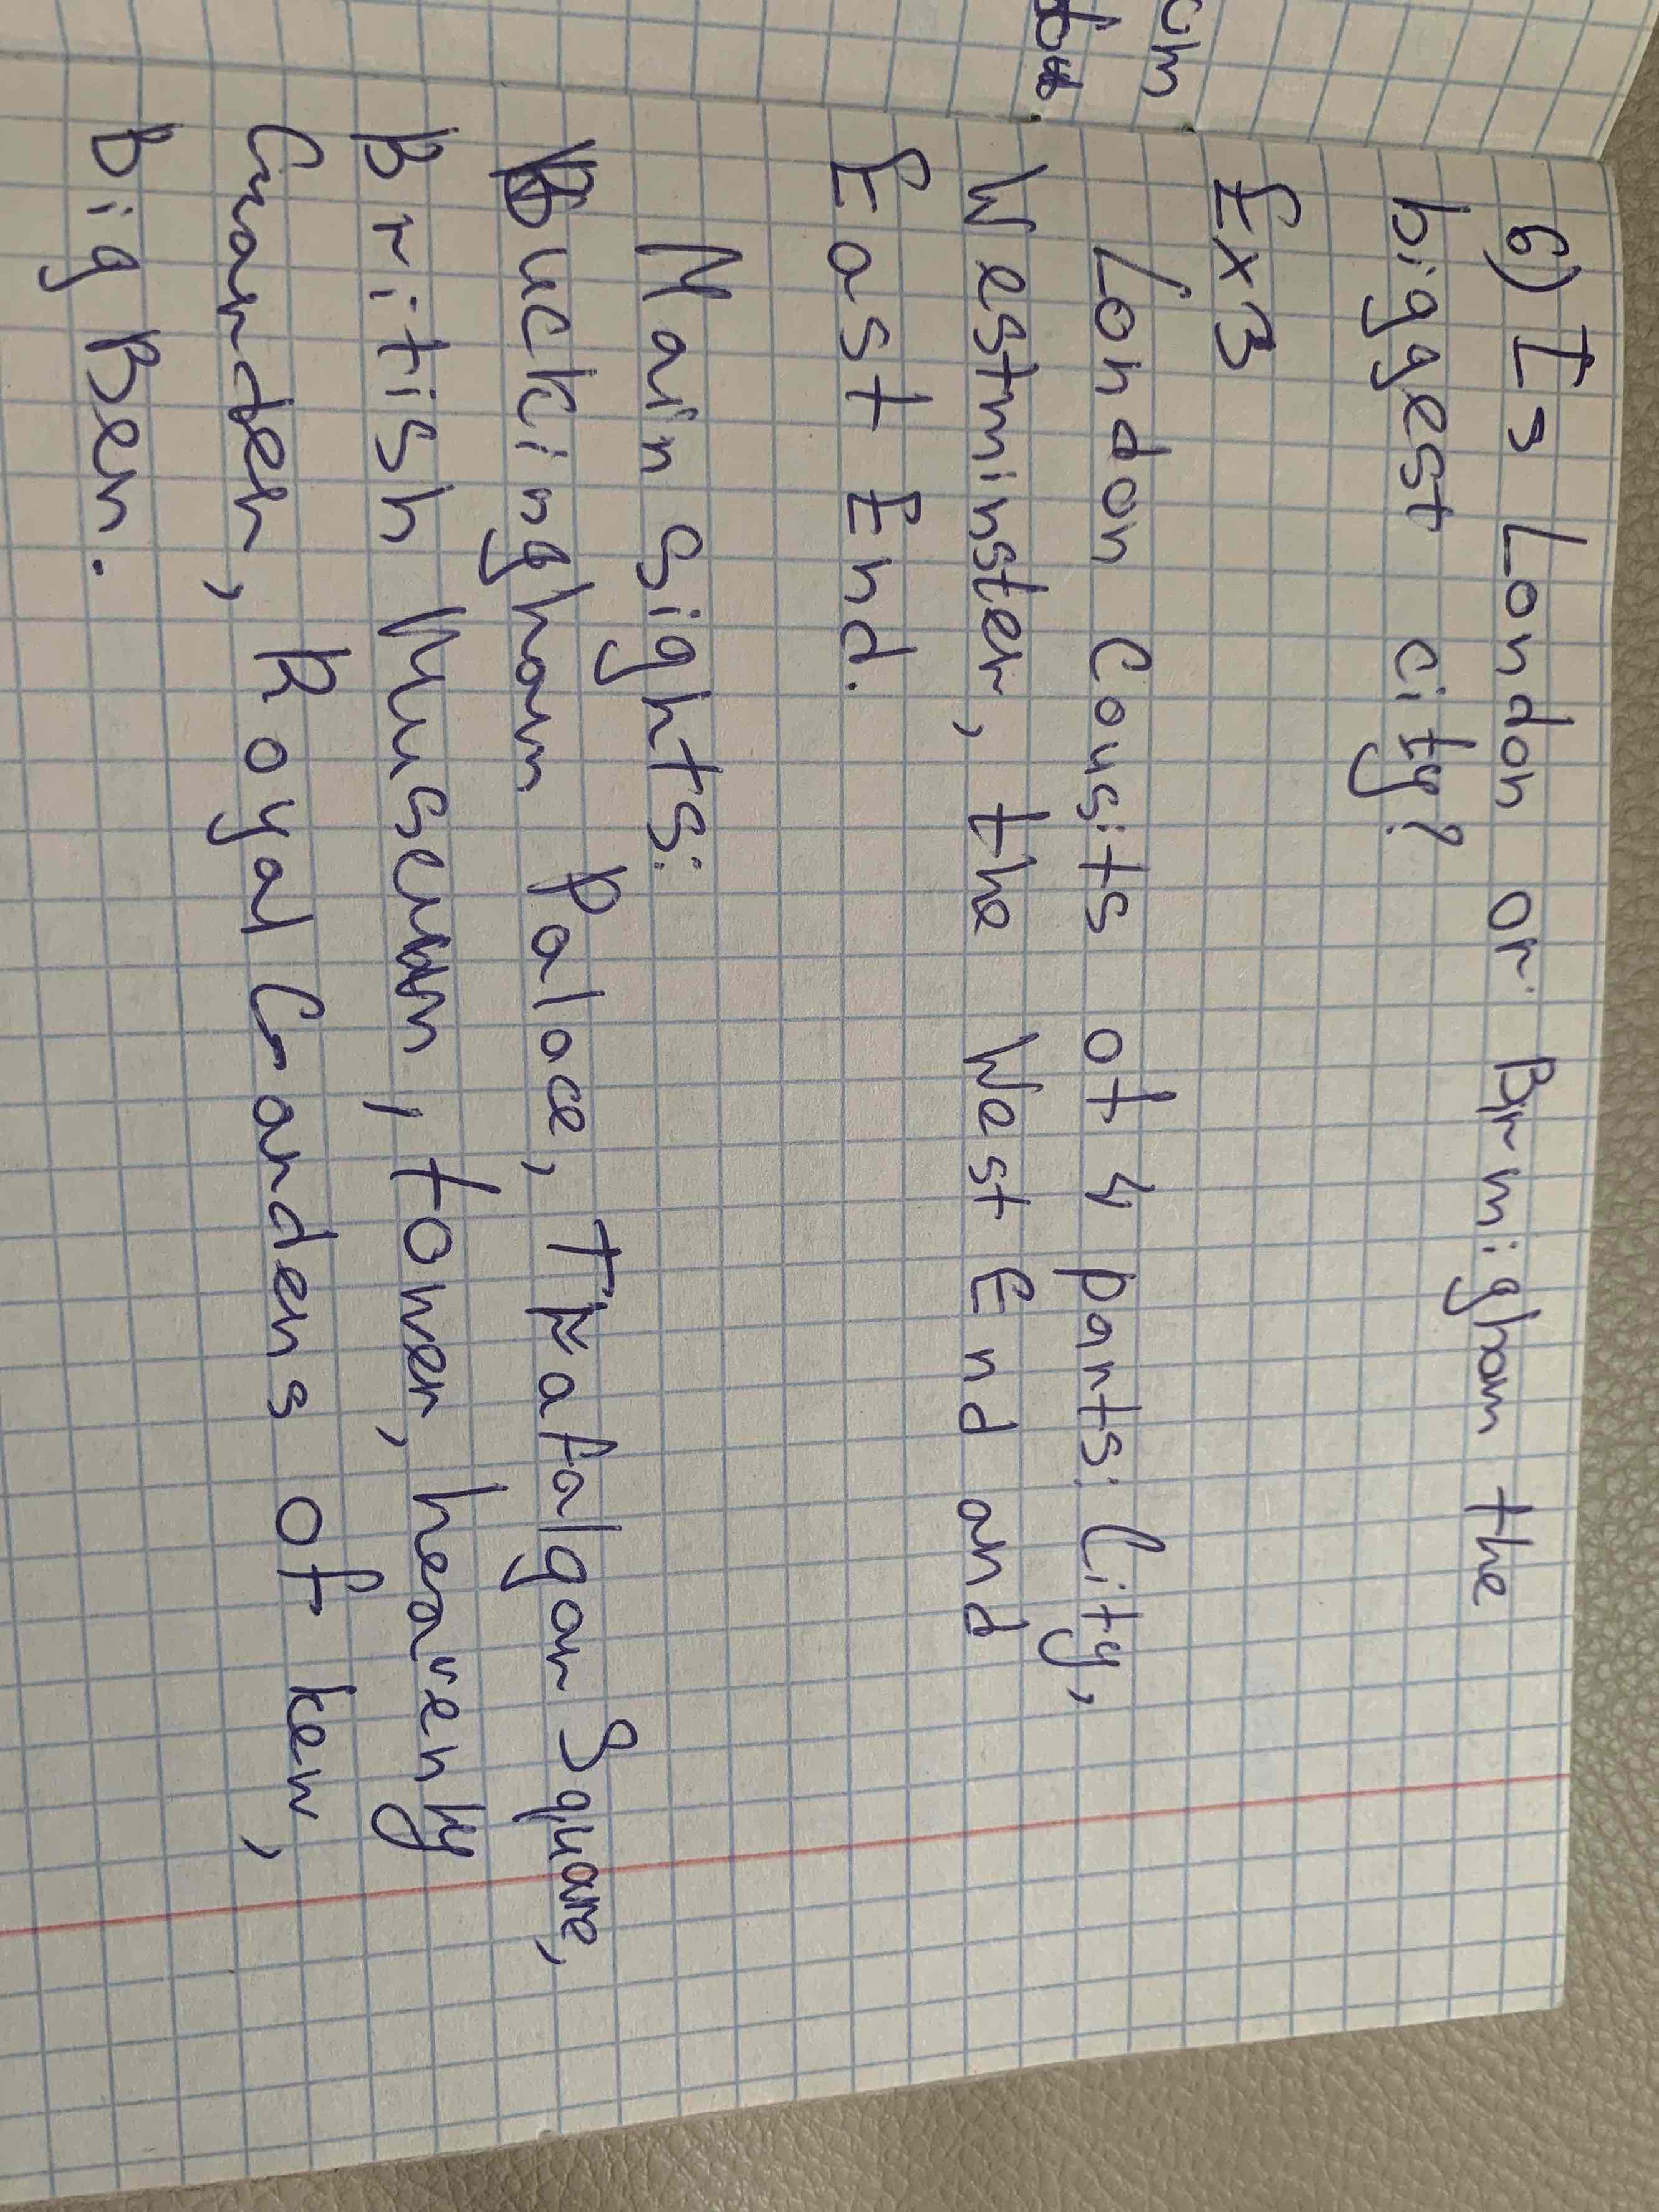 6) Is London or Birmigham the
biggest city?
Ex3
London Cousits of 4 parts: City,
Westminster, the West End and
East End.
Main Sights:
Buckingham Palace, Trafalgar Square,
British Museum, tower, heavenly
Garden, Royal Gardens of kew,
Big Ben.